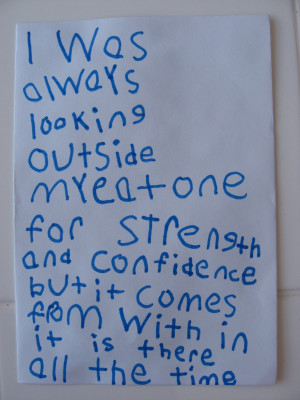 I Was
always
looking
outside
myeatone
for strength
and confidence
but it comes
from with in
it is there
all the time